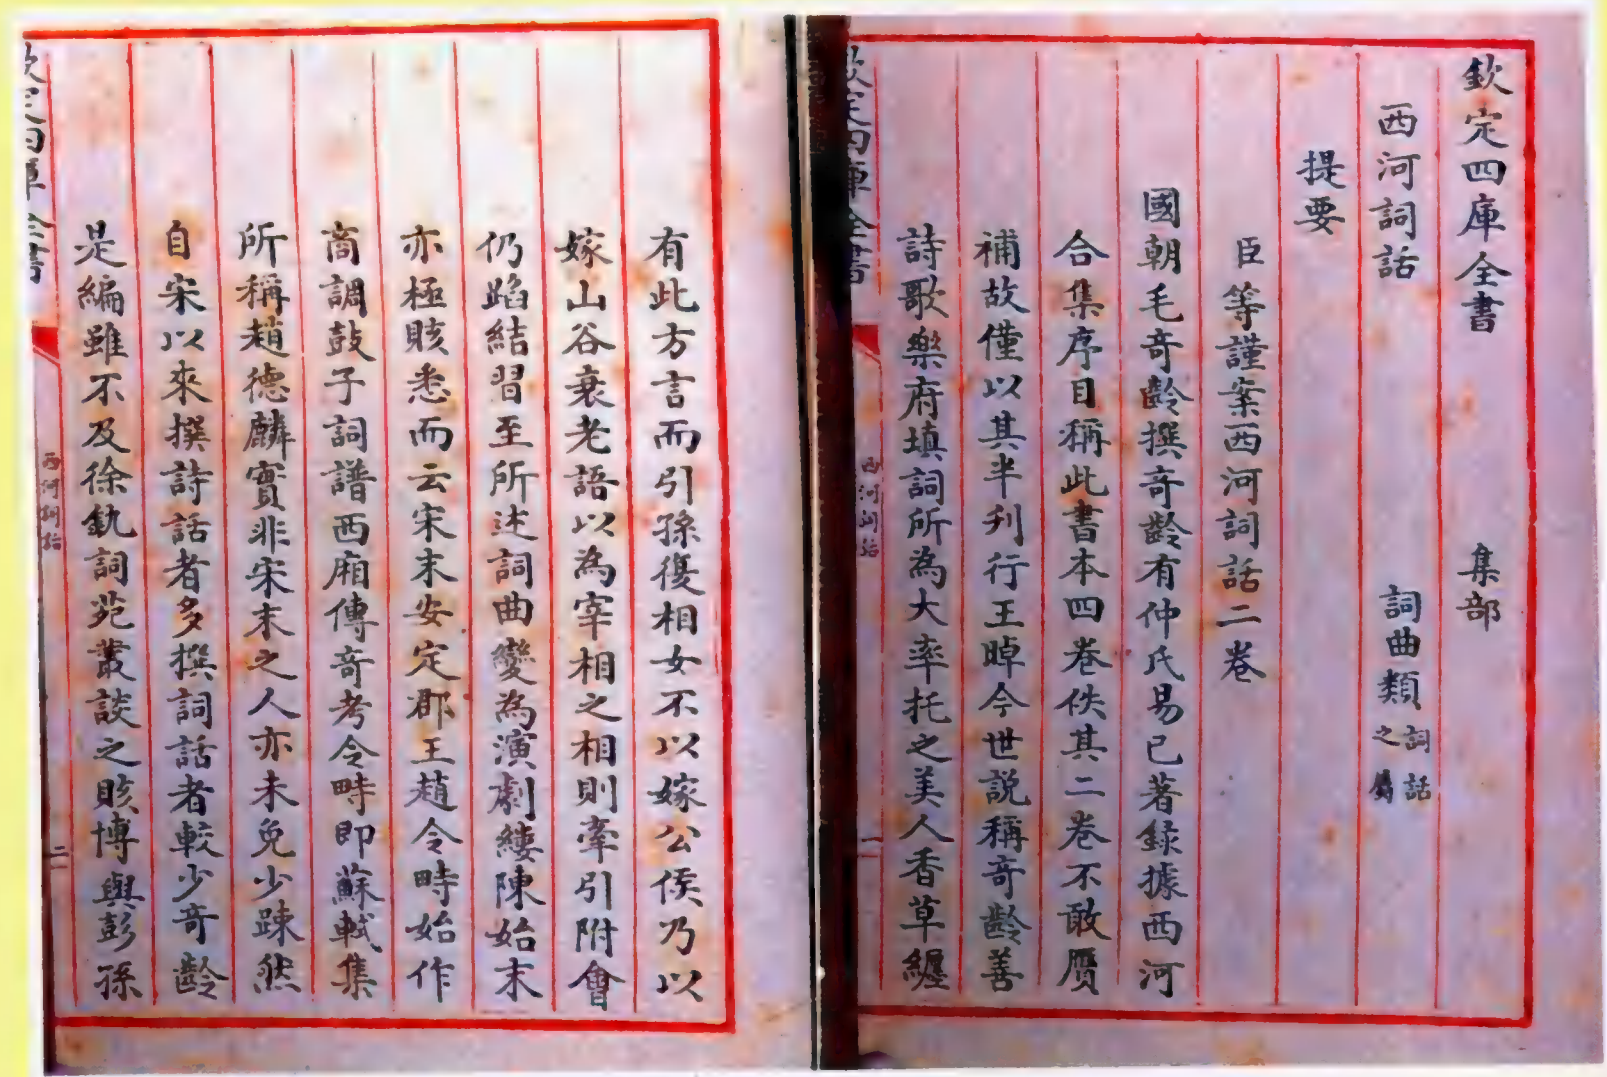 欽定四庫全書 集部
西河詞話 詞曲類詞話之屬
提要
臣等謹案西河詞話二卷
國朝毛奇齡撰奇齡有仲氏易已著錄據西河
合集序目稱此書本四卷佚其二卷不敢贗
補故僅以其半刋行王晫今世說稱奇齡善
詩歌樂府填詞所為大率托之美人香草纏
欽定四庫全書
西河詞話
一
有此方言而引孫復相女不以嫁公侯乃以
嫁山谷衰老語以為宰相之相則牽引附會
仍蹈結習至所述詞曲變為演劇縷陳始末
亦極賅悉而云宋末安定郡王趙令畤始作
商調鼓子詞譜西廂傳奇考令畤即蘇軾集
所稱趙德麟實非宋末之人亦未免少疎然
自宋以來撰詩話者多撰詞話者較少奇齡
是編雖不及徐釚詞苑叢談之賅博與彭孫
欽定四庫全書
西河詞話
二